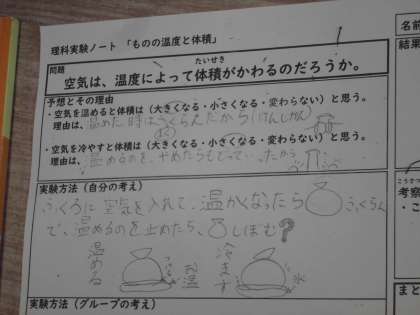 理科実験ノート 「ものの温度と体積」
問題
たいせき
空気は、温度によって体積がかわるのだろうか。
予想とその理由
・空気を温めると体積は（大きくなる・小さくなる・変わらない）と思う。
理由は、温めた時はふくらんだから(じっけん)
・空気を冷やすと体積は（大きくなる・小さくなる・変わらない）と思う。
理由は、温めるのを、やめたらもどっていったから
実験方法（自分の考え）
ふくろに空気を入れて、温かくなったら ふくらん
で、温めるのを止めたら、しぼむ？
温める
お湯
冷ます
氷
実験方法（グループの考え）
名前
結果
考察
・こ
まと